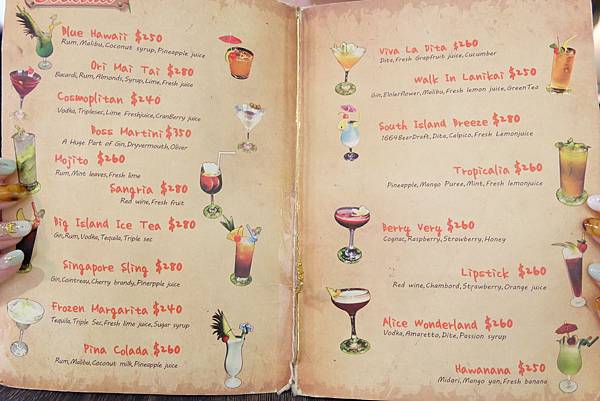 Cocktails
Blue Hawaii $250
Rum,Malibu,Coconut syrup,Pineapple juice
Ori Mai Tai $280
Bacardi,Rum,Almonds,Syrup,Lime,Fresh juice
Cosmoplitan $240
Vodka,Triplesec,Lime Freshjuice,CranBerry juice
Boss Martini $350
A Huge Part of Gin,Dryvermouth,Oliver
Mojito $260
Rum,Mint leaves,Fresh lime
Sangria $280
Red wine,Fresh fruit
Big Island Ice Tea $280
Gin,Rum,Vodka,Tequila,Triple sec
Singapore Sling $280
Gin,Contreau,Cherry brandy,Pinerpple juice
Frozen Margarita $240
Tequila,Triple Sec,Fresh lime juice,Sugar syrup
Pina Colada $260
Rum,Malibu,Coconut milk,Pineapple juice
Viva La Dita $260
Dita,Fresh Grapfruit juice,Cucumber
Walk In Lanikai $250
Gin,Elolerflower,Malibu,Fresh lemon juice,GreenTea
South Island Breeze $280
1664BeerDraft,Dita,Calpico,Fresh Lemonjuice
Tropicalia $260
Pineapple,Mango Puree,Mint,Fresh lemonjuice
Berry Very $260
Cognac,Raspberry,Strawberry,Honey
Lipstick $260
Red wine,Chambord,Strawberry,Orange juice
Alice Wonderland $260
Vodka,Amaretto,Dite,Passion syrup
Hawanana $250
Midori,Mango yan,Fresh banana